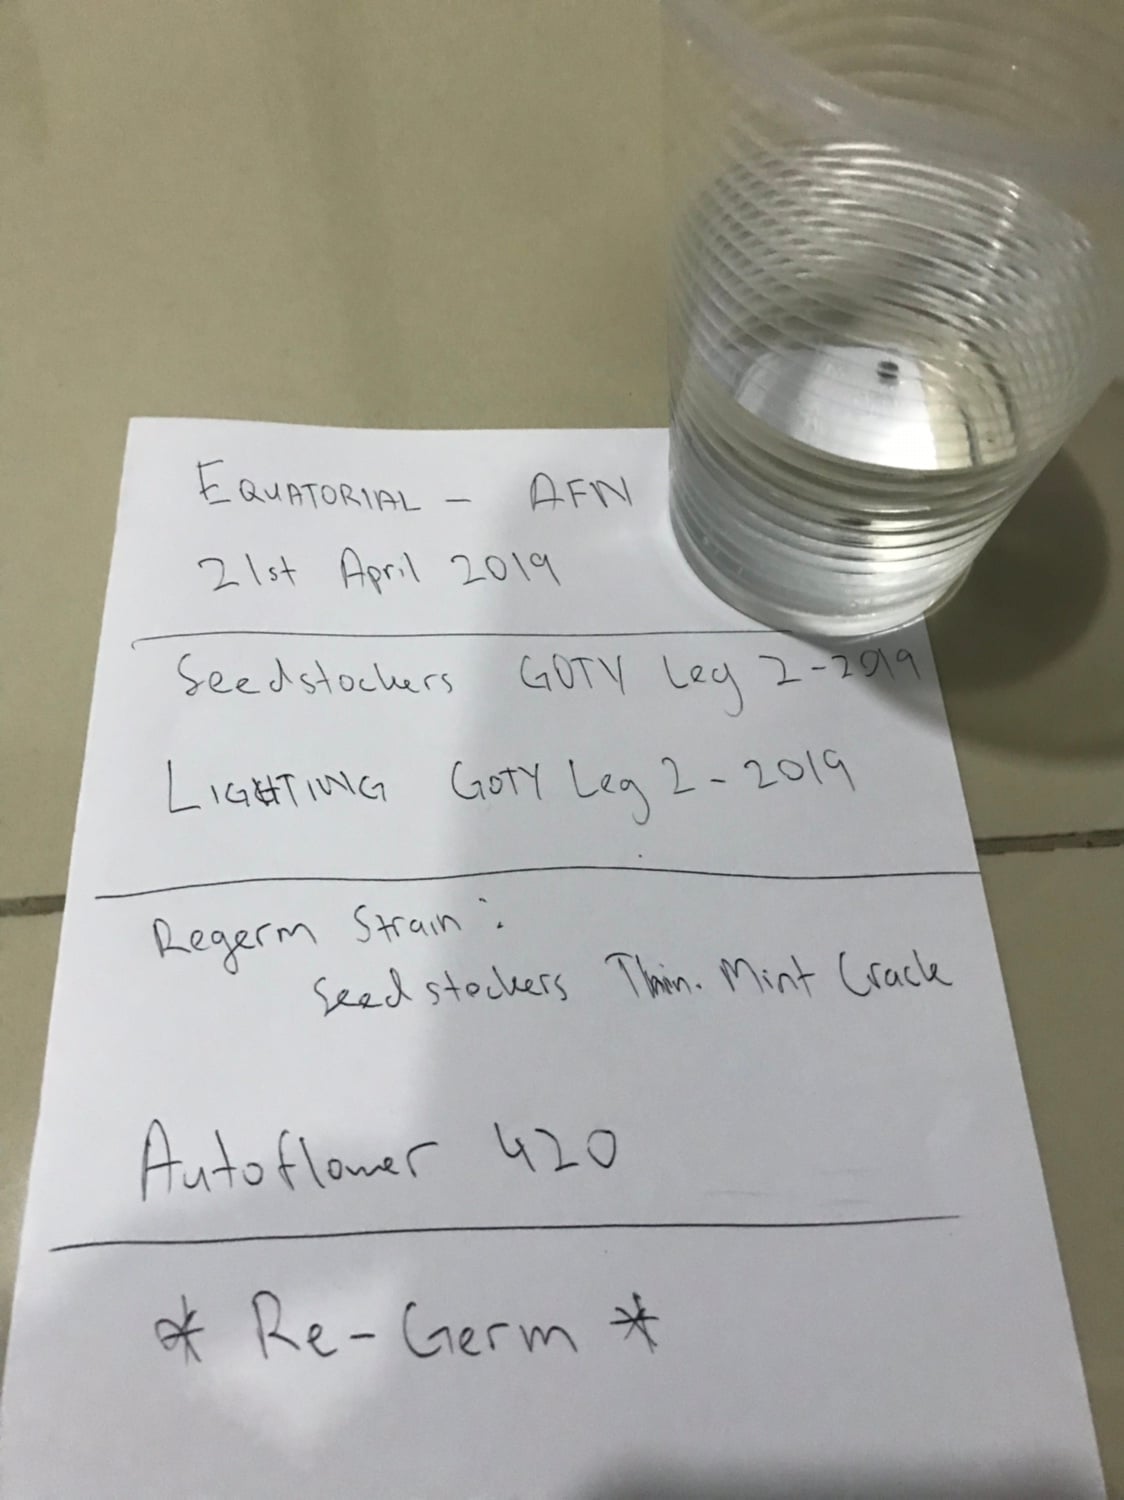 EQUATORIAL - AFN
21st April 2019
Seedstockers GOTY Leg 2-2019
LIGHTING GOTY Leg 2-2019
Regerm Strain:
Seedstockers Thin. Mint Crack
Autoflower 420
* Re-Germ *